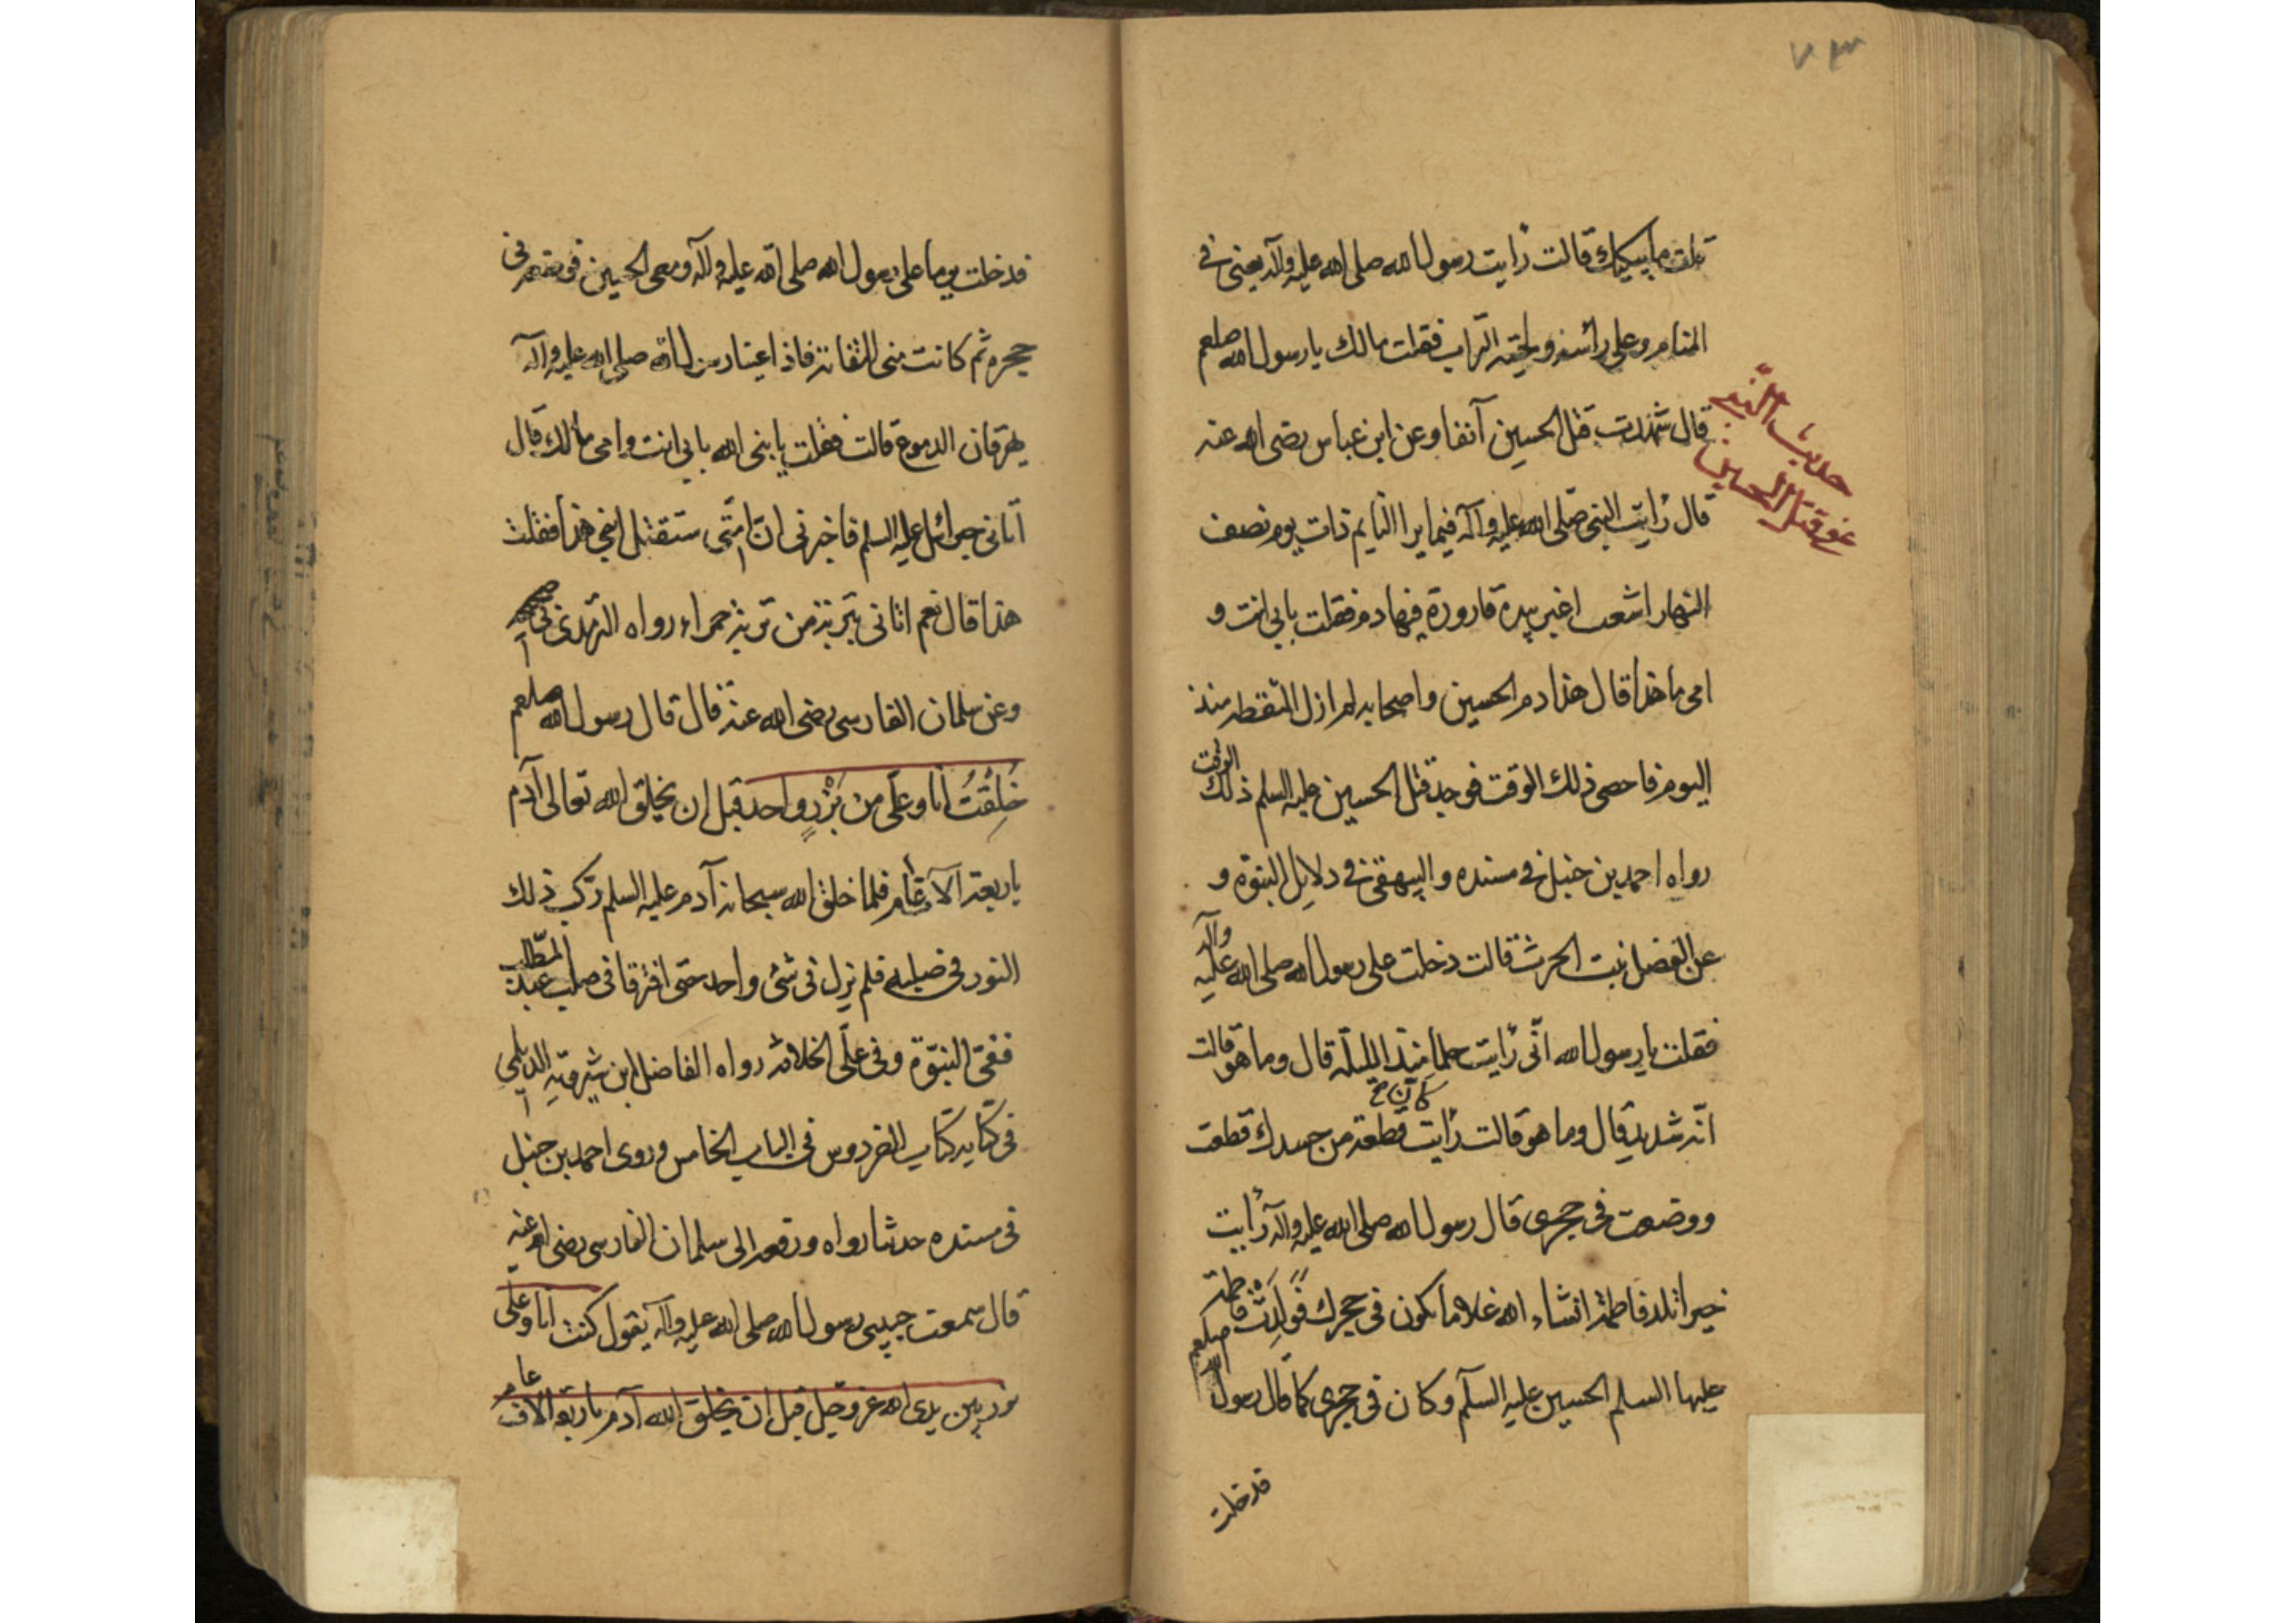 ٧٣
قلت ما يبكيك قالت رأيت رسول الله صلى الله عليه وآله يعني في
المنام وعلى رأسه ولحيته التراب فقلت مالك يا رسول الله صلعم
قال شهدت قتل الحسين آنفا وعن ابن عباس رضى الله عنه
حديث النبي
عن قتل الحسين
قال رأيت النبي صلى الله عليه وآله فيما يرا النايم ذات يوم نصف
النهار اشعث اغبر بيده قارورة فيها دم فقلت بابى انت و
امى ما هذا قال هذا دم الحسين واصحابه لم ازل التقطه منذ
اليوم فاحصى ذلك الوقت فوجد قتل الحسين عليه السلم ذلك الوقت
رواه احمد بن حنبل في مسنده والبيهقى في دلايل النبوة و
عن الفضل بنت الحرث قالت دخلت على رسول الله صلى الله عليه وآله
فقلت يا رسول الله انّى رأيت حلما منذ الليلة قال وما هو قالت
انّه شديد قال وما هو قالت رأيت كان قطعة من جسدك قطعت
ووضعت في حجرى قال رسول الله صلى الله عليه وآله رأيت
خيرا تلد فاطمة انشاء الله غلاما يكون في حجرك فَوَلَدَتْ فاطمة
عليها السلم الحسين عليه السلم وكان في حجرى كما قال رسول الله صلعم
قد خلت
فدخلت يوما على رسول الله صلى الله عليه وآله ومعى الحسين فوضعته في
حجره ثم كانت منى التفاتة فاذا عينا رسول الله صلى الله عليه وآله
يهرقان الدموع قالت فقلت يا نبى الله بابى انت وامى مالك قال
اتانى جبرائيل عليه السلم فاخبرنى انّ امّتى ستقتل ابنى هذا فقلت
هذا قال نعم اتانى بتربة من تربة حمراء رواه الترمذى في صحيحه
وعن سلمان الفارسى رضى الله عنه قال قال رسول الله صلعم
خُلِقْتُ انا وعلى من نور واحد قبل ان يخلق الله تعالى آدم
باربعة الآف عام فلما خلق الله سبحانه آدم عليه السلم ركب ذلك
النور في صلبه فلم يزل في شئ واحد حتى افترقا في صلب عبد المطّلب
ففىّ النبوّة وفي علىّ الخلافة رواه الفاضل ابن شيرويه الديلمى
في كتابه كتاب الفردوس في الباب الخامس وروى احمد بن حنبل
في مسنده حديثا رواه ورفعه الى سلمان الفارسى رضى الله عنه
قال سمعت حبيبى رسول الله صلى الله عليه وآله يقول كنت انا وعلى
نور بين يدى الله عز وجل قبل ان يخلق الله آدم باربعة الاف عام